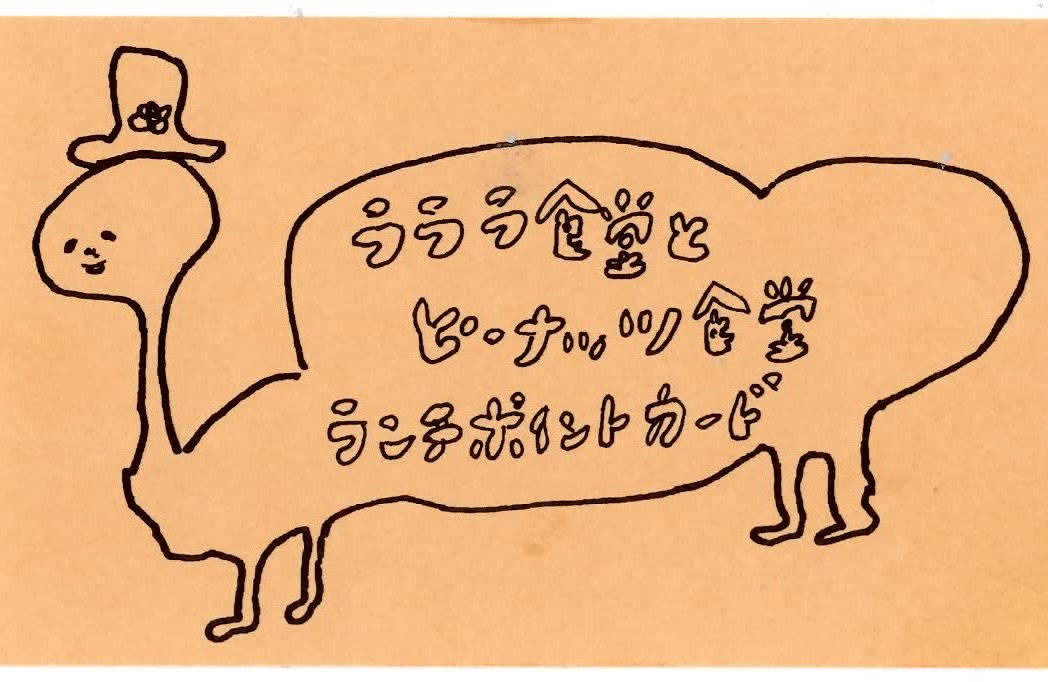 ラララ食堂と
ピーナッツ食堂
ランチポイントカード